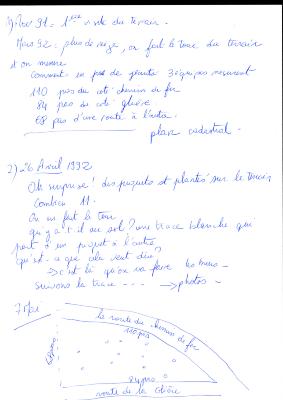 1) Nov 91 = 1ère visite du terrain.
Mars 92 : plus de neige, on fait le tour du terrain
et on mesure
Comment en pas de géants 3 équipes mesurent
110 pas du côté chemin de fer
84 pas du côté glière
68 pas d'une route à l'autre.
plan cadastral.
2) 26 Avril 1992
Oh surprise! des piquets st plantés sur le terrain
Combien 11.
On en fait le tour
qu'y a-t-il au sol? une trace blanche qui
part d'un piquet à l'autre
qu'est-ce que cela veut dire
→ c'est là qu'on va faire les murs -
suivons la trace --- → photos -
7 Mai
la route du chemin de fer
110 pas
68 pas
84 pas
route de la Glière